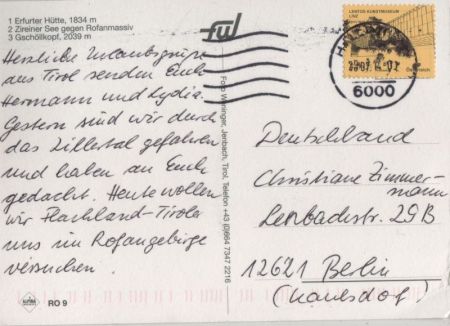 1 Erfurter Hütte, 1834 m
2 Zireiner See gegen Rofanmassiv
3 Gschöllkopf, 2039 m
Herzliche Urlaubsgrüße
aus Tirol senden Euch
Hermann und Lydia.
Gestern sind wir durch
das Zillertal gefahren
und haben an Euch
gedacht. Heute wollen
wir Flachland-Tiroler
uns im Rofangebirge
versuchen.
RO 9
Foto Weninger, Jenbach, Tirol, Telefon +43 (0)664 7347 2216
LENTOS KUNSTMUSEUM
LINZ
Österreich
6000
Deutschland
Christiane Zimmer-
mann
Lenbachstr. 29B
12621 Berlin
(Kaulsdorf)